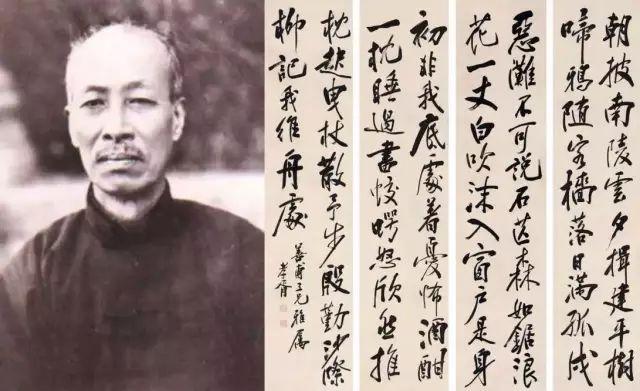 朝披南陵雲夕揖建平樹
啼鴉隨客檣落日滿孤戍
惡灘不可說石芒森如鋸浪
花一丈白吹沫入窗戶是身
初非我底處著憂怖酒酣
一枕睡過盡蛟鱷怒欣然推
枕起曳杖散予步殷勤沙際
柳記我維舟處
三兄雅屬
孝胥